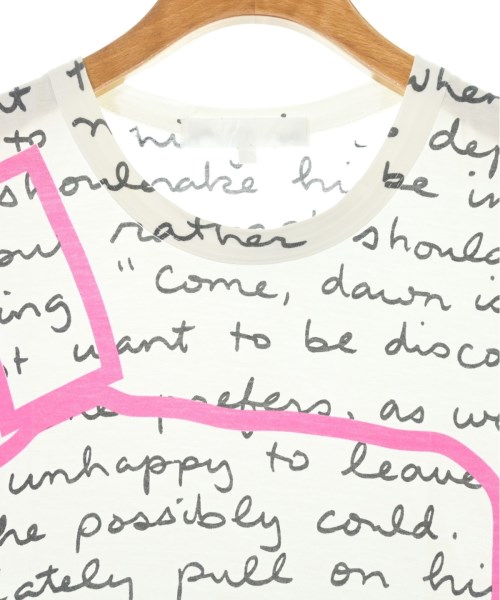 to
should make hi be in
rather should
ing "Come, dawn is
t want to be disco
he prefers, as we
unhappy to leave
he possibly could.
ately pull on hi